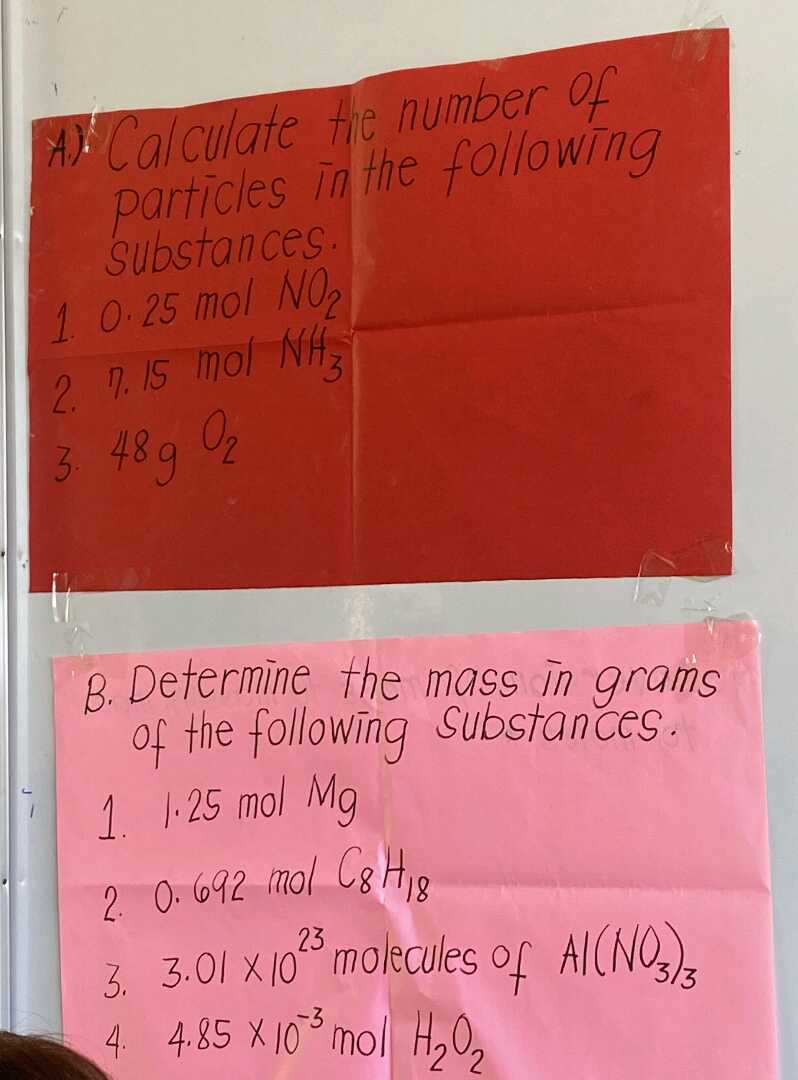 A.) Calculate the number of
particles in the following
substances.
1. 0.25 mol NO₂
2. 7.15 mol NH₃
3. 48g O₂
B. Determine the mass in grams
of the following substances.
1. 1.25 mol Mg
2. 0.692 mol C₈H₁₈
3. 3.01 x 10²³ molecules of Al(NO₃)₃
4. 4.85 x 10⁻³ mol H₂O₂